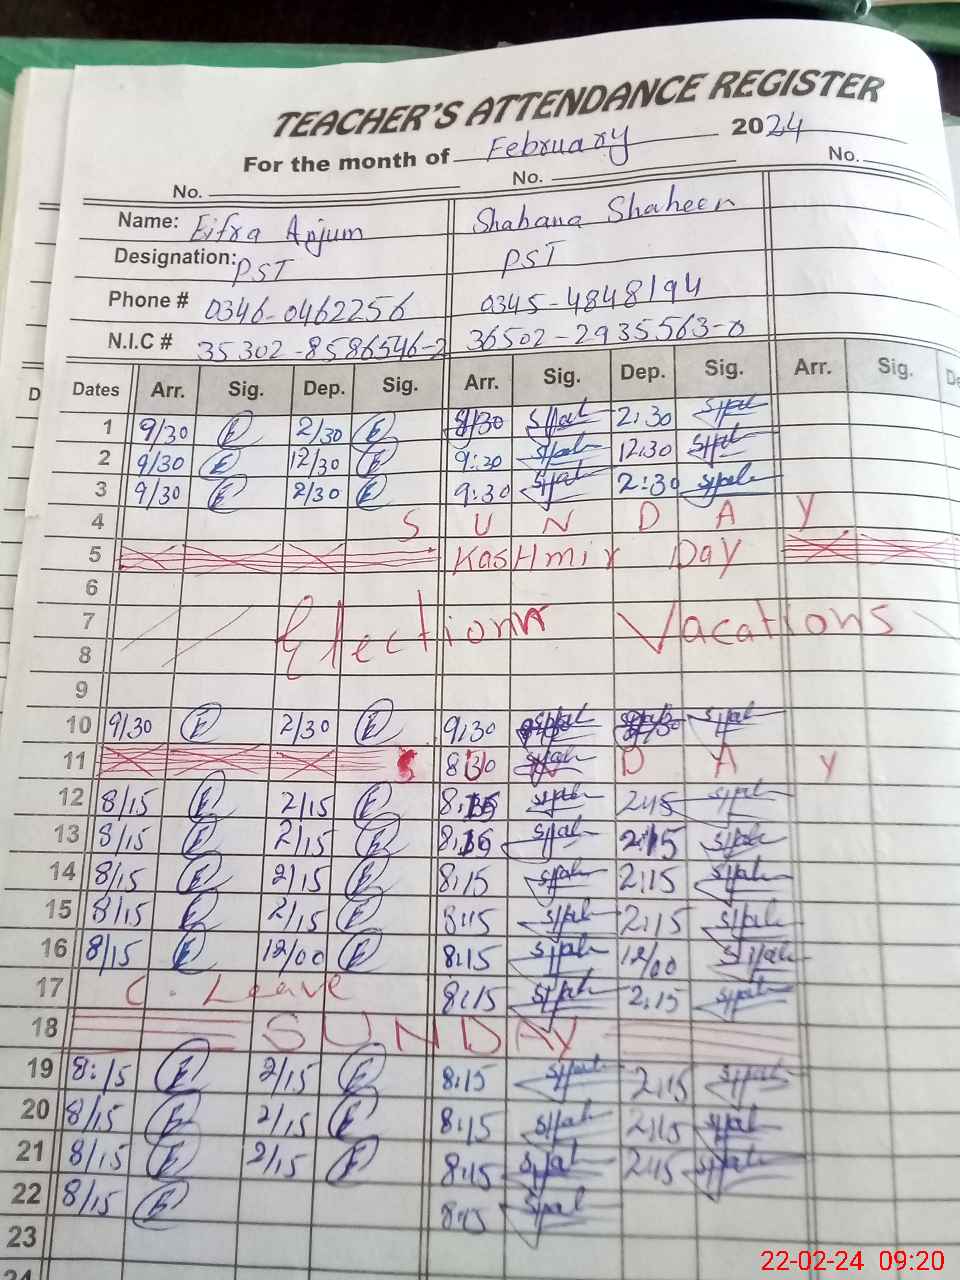 TEACHER'S ATTENDANCE REGISTER
For the month of February 2024
No. No. No.
Name: Eifra Anjum Shabana Shaheen
Designation: PST PST
Phone # 0346-0462256 0345-4848194
N.I.C # 35302-8586546-2 36502-2935563-0
D Dates Arr. Sig. Dep. Sig. Arr. Sig. Dep. Sig. Arr. Sig. De
1 9/30 E 2/30 E 2:30
2 9/30 E 12/30 E 9:30 12:30
3 9/30 E 2/30 E 9:30 2:30
4 S U N D A Y
5 Kashmir Day
6
7 Election Vacations
8
9
10 9/30 E 2/30 E 9:30
11 S U N D A Y
12 8/15 E 2/15 E 8:15 2:15
13 8/15 E 2/15 E 8:15 2:15
14 8/15 E 2/15 E 8:15 2:15
15 8/15 E 2/15 E 8:15 2:15
16 8/15 E 12/00 E 8:15 12/00
17 C. Leave 8:15 2:15
18 SUNDAY
19 8:15 E 2/15 E 8:15 2:15
20 8/15 E 2/15 E 8:15 2:15
21 8/15 E 2/15 E 8:15 2:15
22 8/15 E 8:15
23
24
22-02-24 09:20